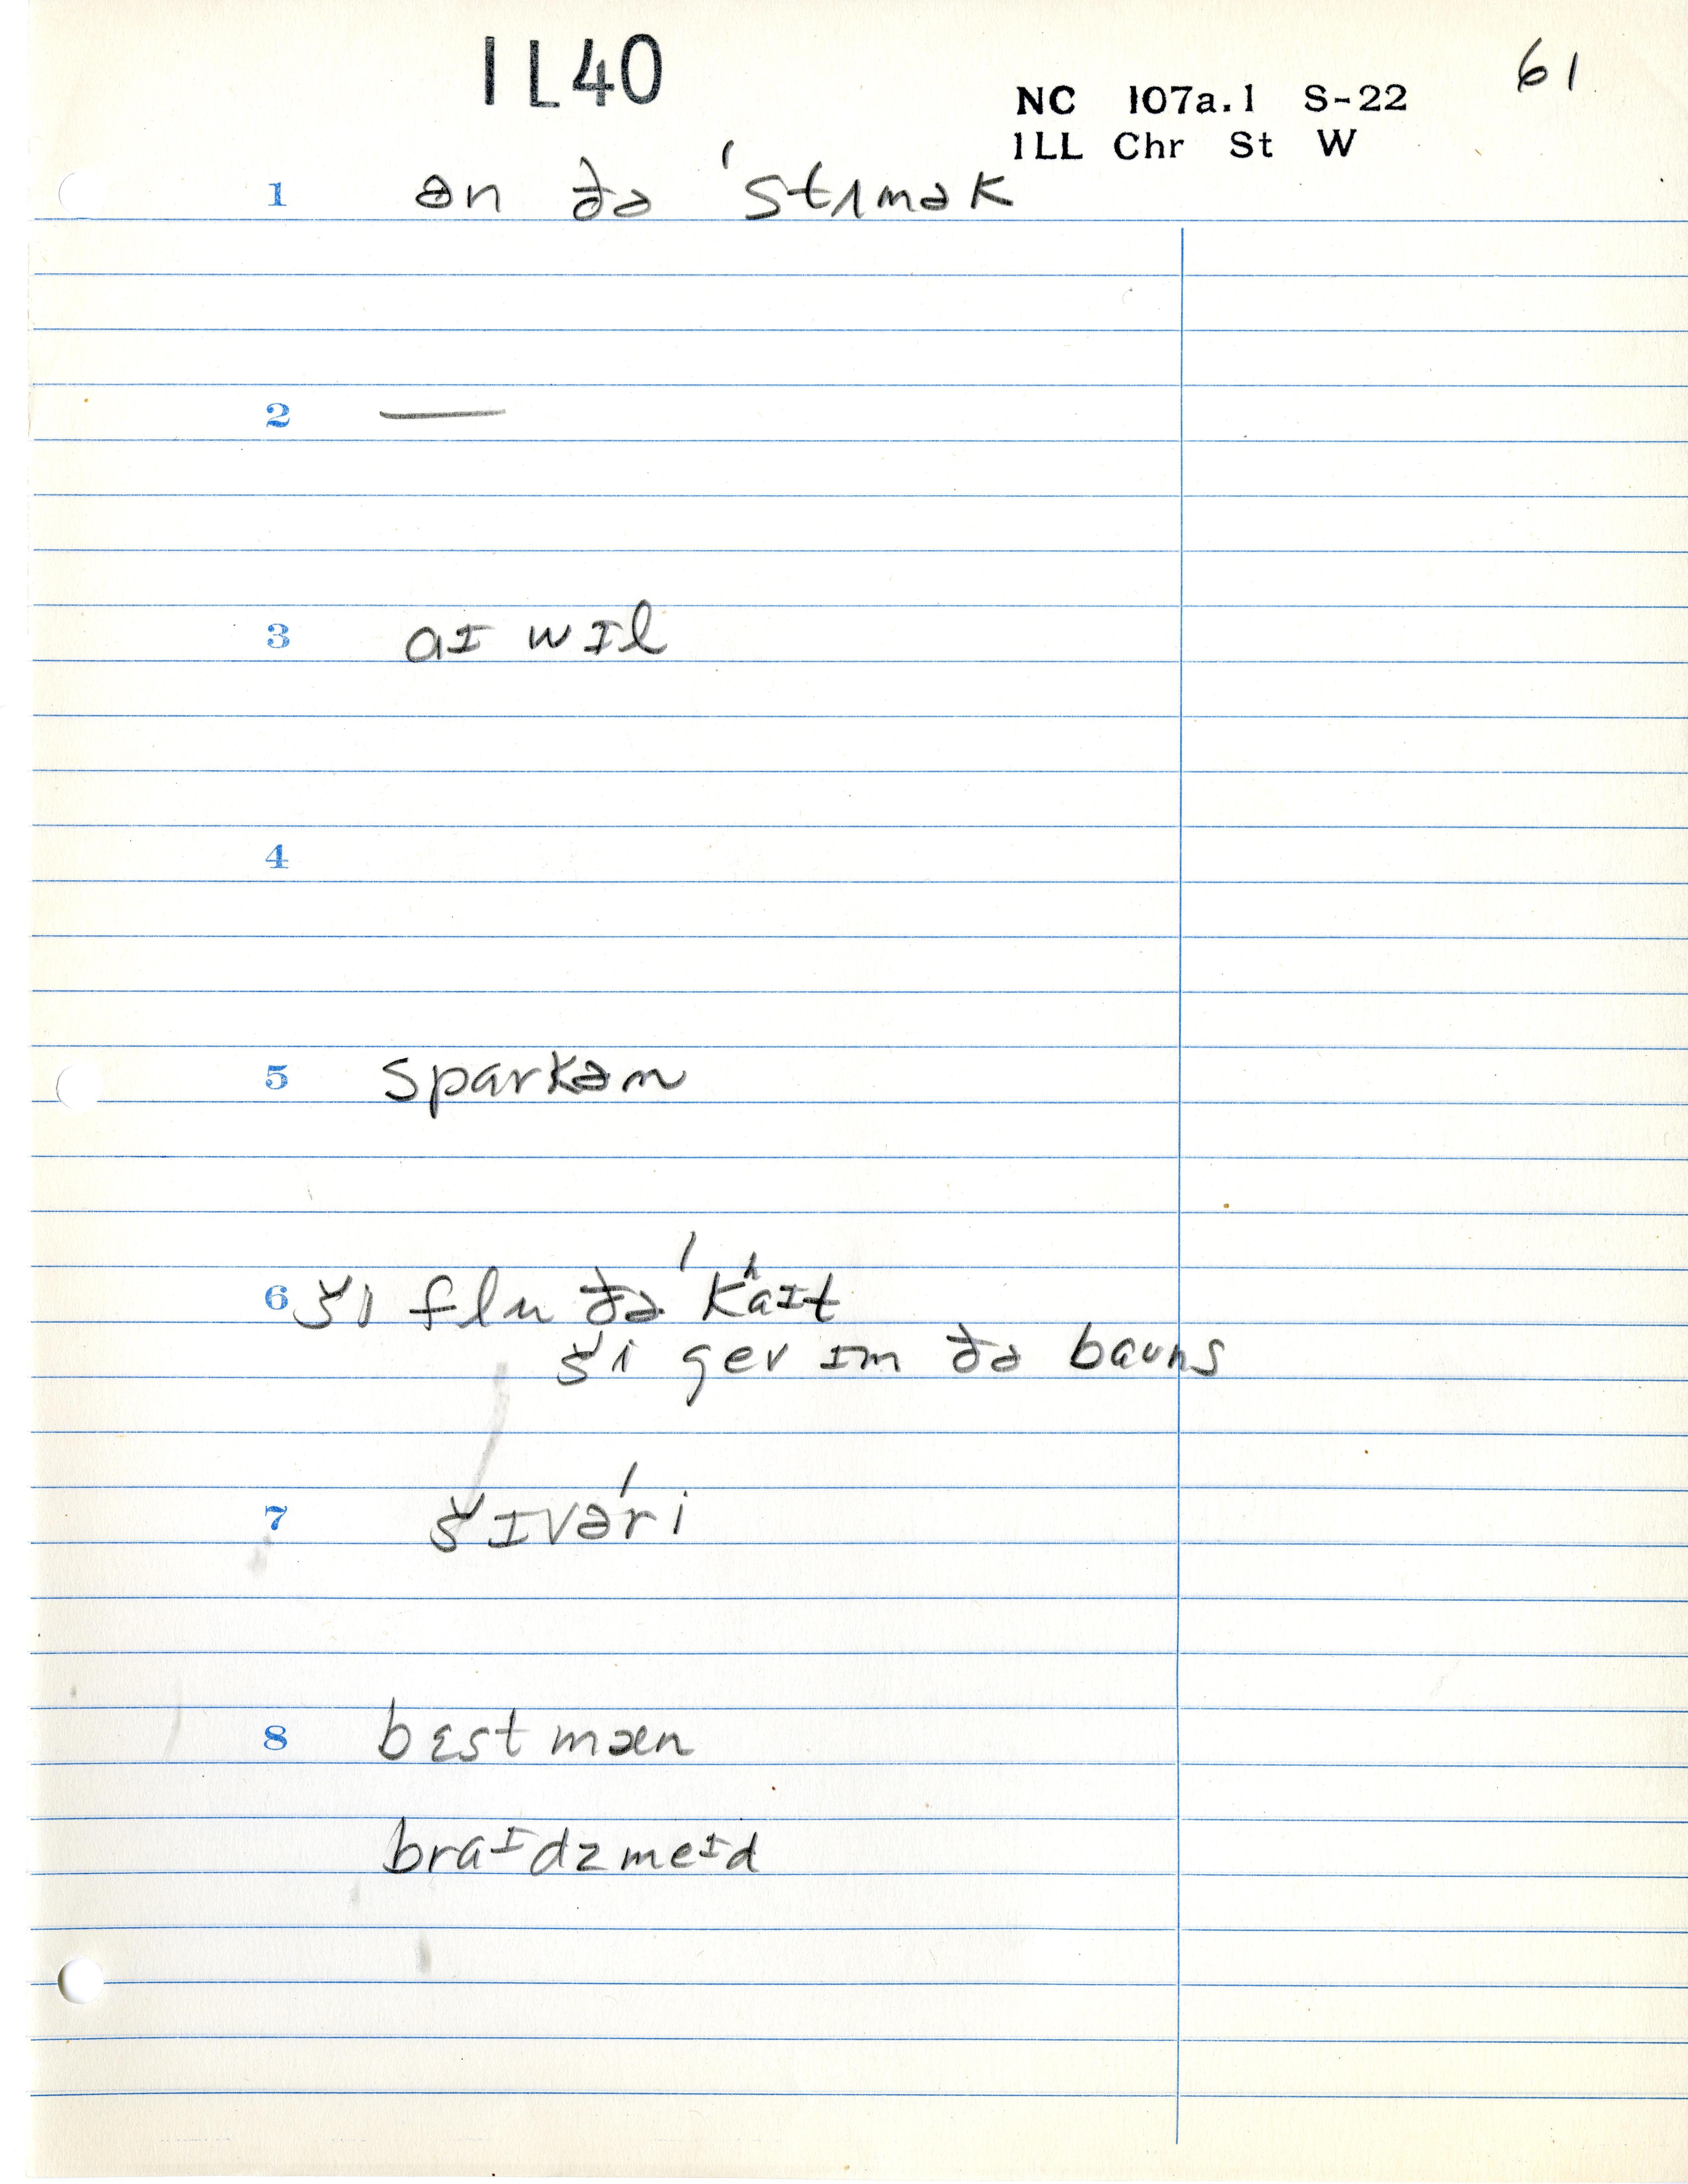 IL40
61
NC 107a.1 S-22
ILL Chr St W
1 ən ðə 'stʌmək
2 —
3 aɪ wɪl
4
5 sparkən
6 ši flu ðə 'kʰaɪt
ši gev ɪm ðə bauns
7 šɪvə'ri
8 bɛst mæn
braɪdzmeɪd